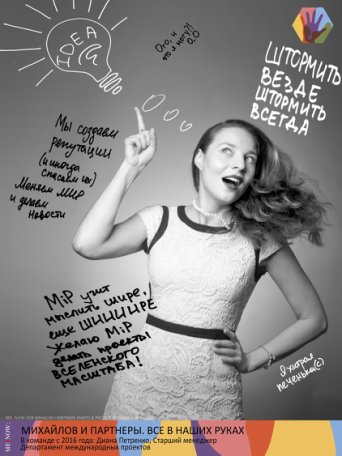 IDEA
Ого, и
это я могу?!
О.О
ШТОРМИТЬ
ВЕЗДЕ
ШТОРМИТЬ
ВСЕГДА
Мы создаем
репутации
(и иногда
спасаем их)
Меняем МИР
и делаем
новости
MiP учит
мыслить шире,
еще ШИИИИРЕ
желаю MiP
делать проекты
ВСЕЛЕНСКОГО
МАСШТАБА!
Я хитрая
печенька(с)
ME NOW:
МИХАЙЛОВ И ПАРТНЕРЫ. ВСЕ В НАШИХ РУКАХ
В команде с 2016 года: Диана Петренко, Старший менеджер
Департамент международных проектов